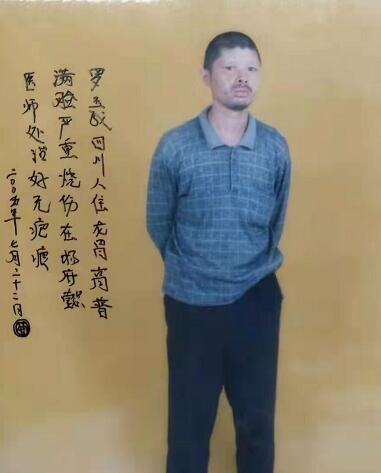 罗四川人住龙商普
满脸严重烧伤在府
医师处治好无疤痕
二〇〇五年七月二十二日